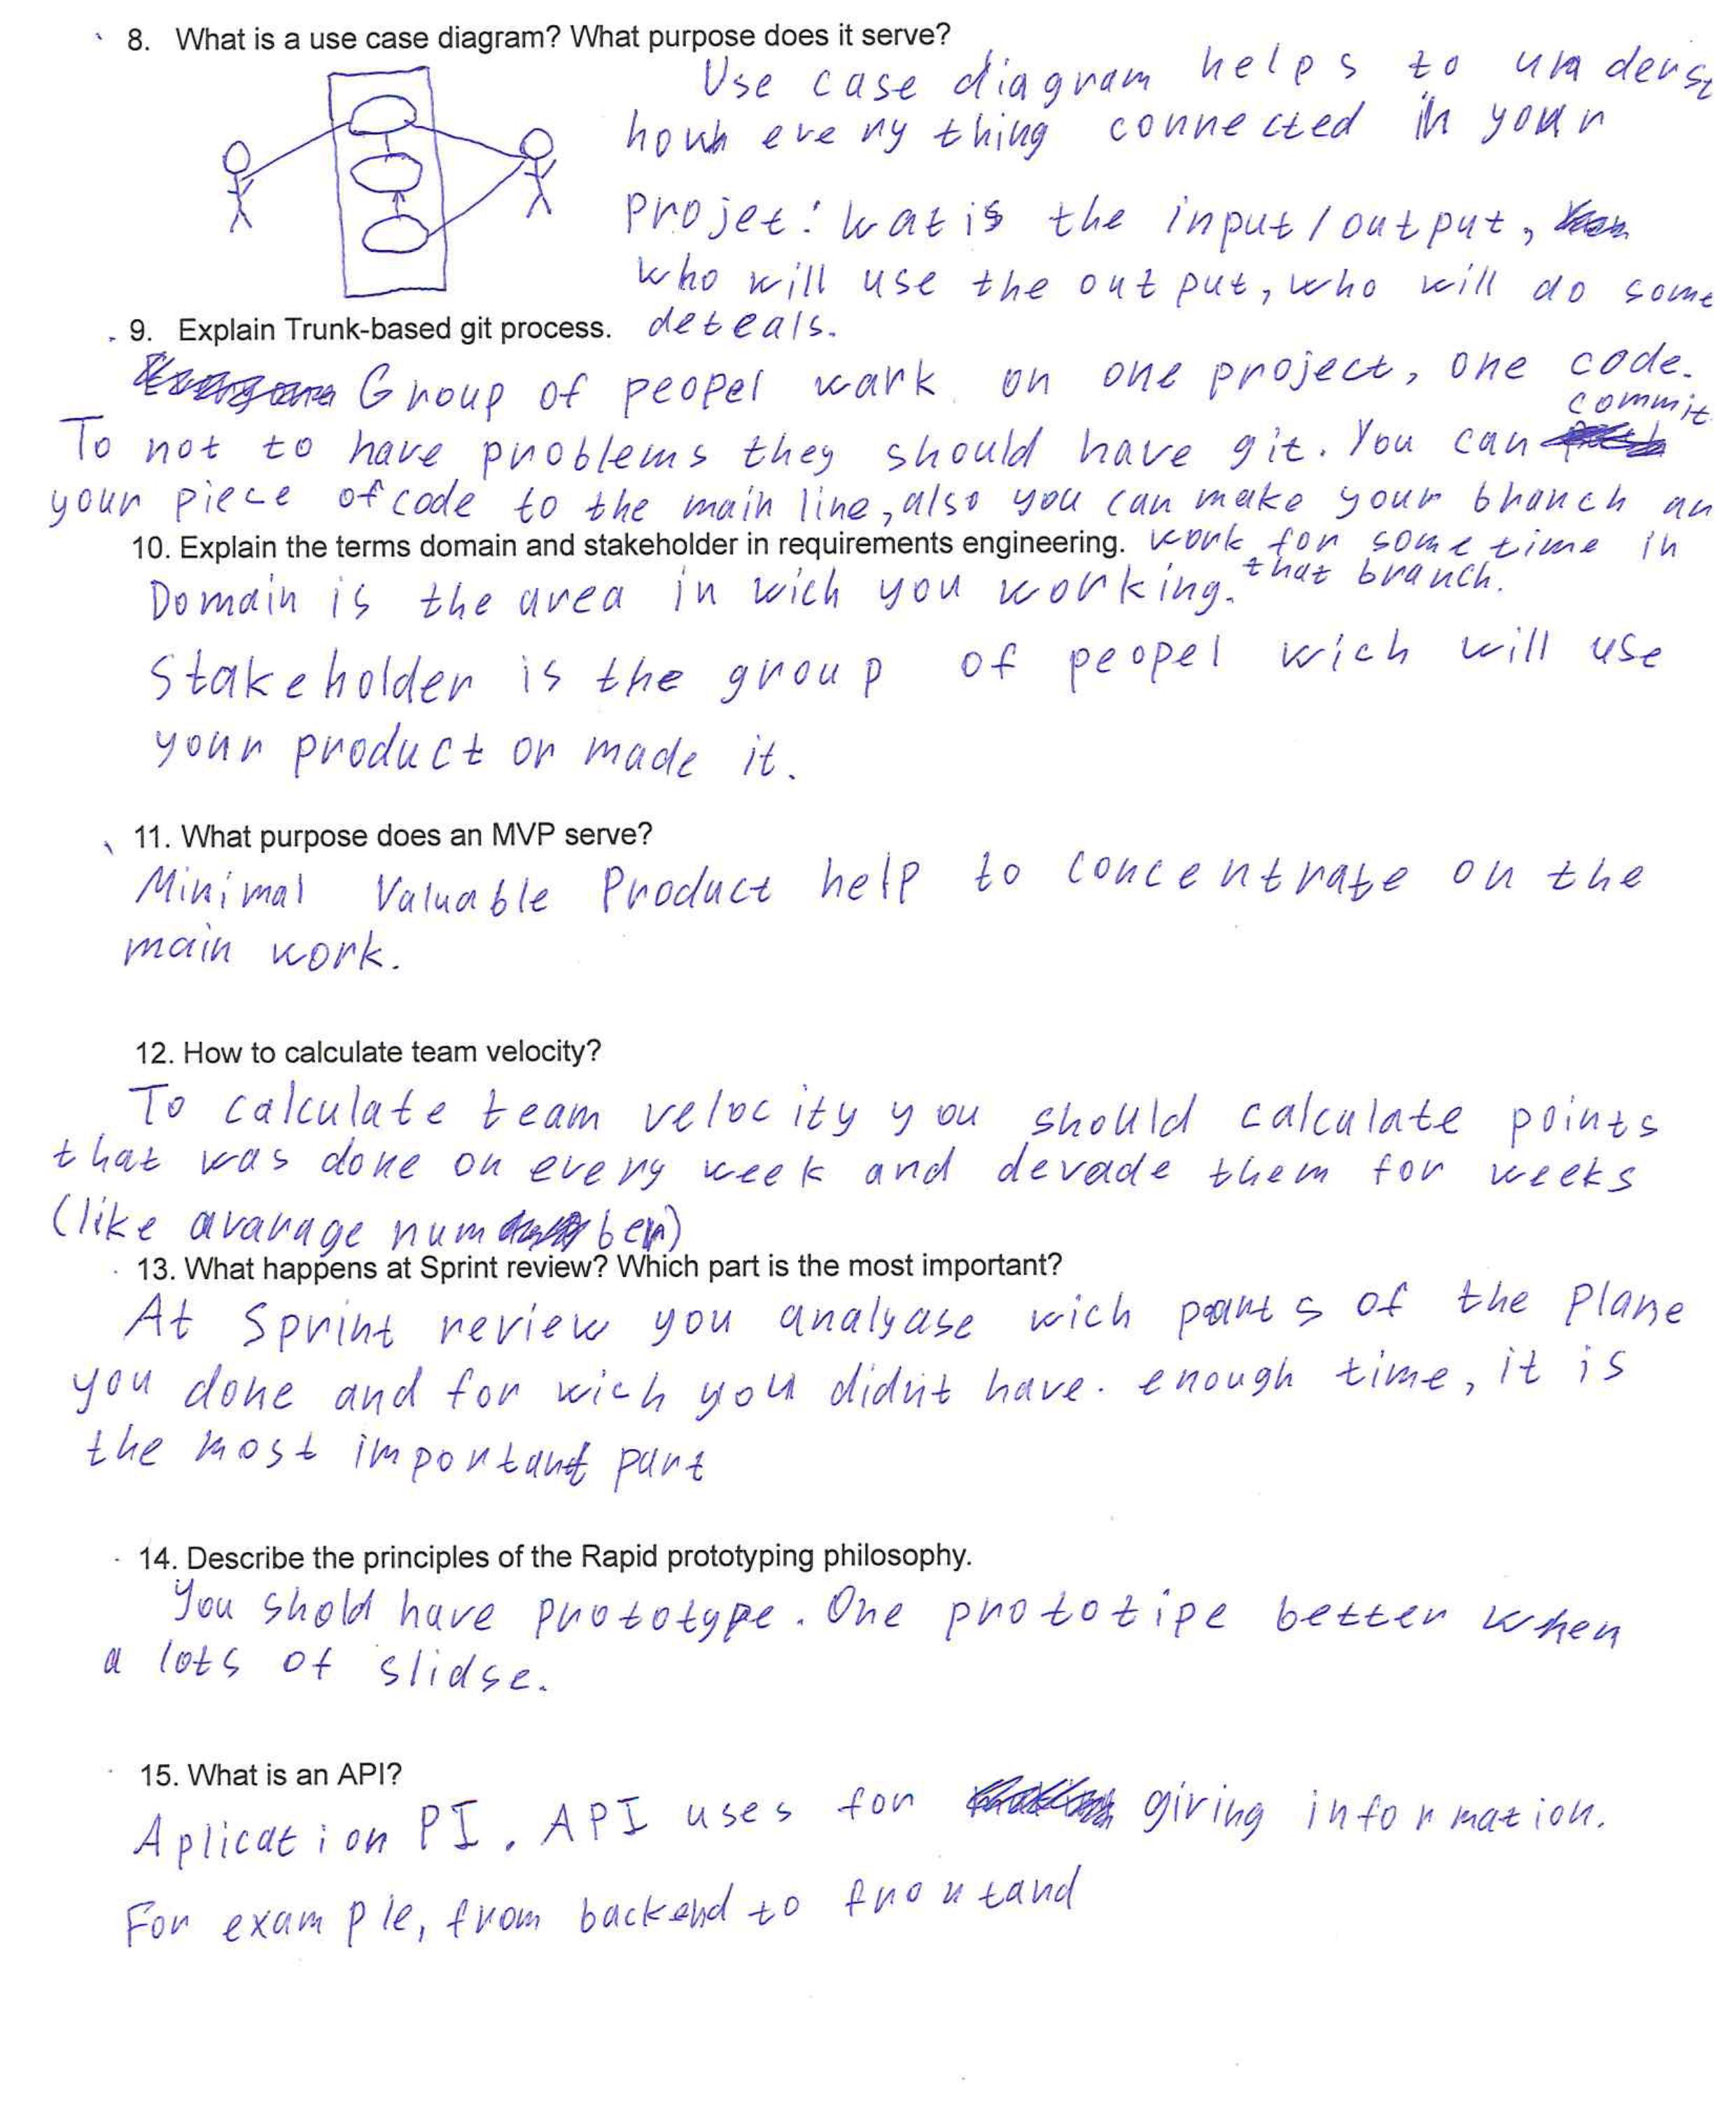 8. What is a use case diagram? What purpose does it serve?
Use case diagram helps to underst
how every thing connected in your
projet: wat is the input/output,
who will use the output, who will do some
9. Explain Trunk-based git process. deteals.
Group of peopel wark on one project, one code.
commit
To not to have problems they should have git. You can
your piece of code to the main line, also you can make your branch an
10. Explain the terms domain and stakeholder in requirements engineering. work for some time in
that branch.
Domain is the area in wich you working.
Stakeholder is the group of peopel wich will use
your product or made it.
11. What purpose does an MVP serve?
Minimal Valuable Product help to concentrate on the
main work.
12. How to calculate team velocity?
To calculate team velocity you should calculate points
that was done on every week and devade them for weeks
(like avarage number)
13. What happens at Sprint review? Which part is the most important?
At Sprint review you analyase wich parts of the plane
you done and for wich you didnt have. enough time, it is
the most important part
14. Describe the principles of the Rapid prototyping philosophy.
You shold have prototype. One prototipe better when
a lots of slidse.
15. What is an API?
Aplication PI. API uses for giving information.
For example, from backend to frontand